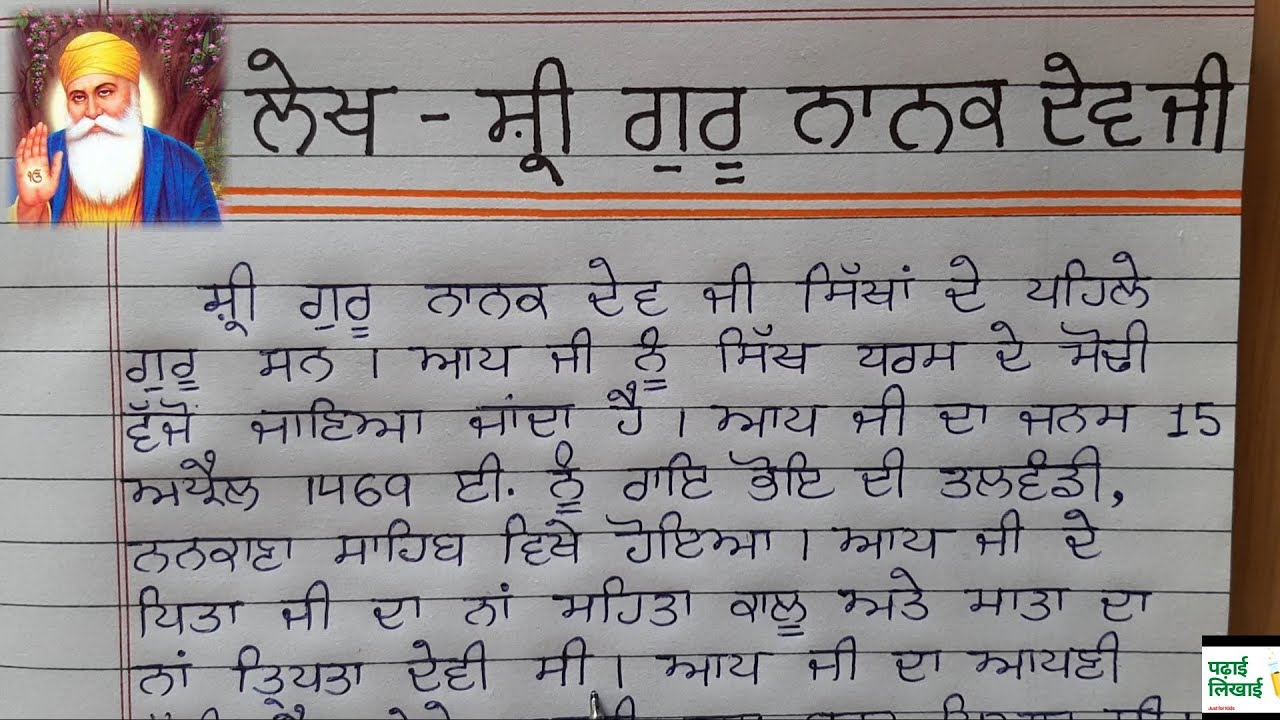 ਲੇਖ - ਸ਼੍ਰੀ ਗੁਰੂ ਨਾਨਕ ਦੇਵ ਜੀ
ਸ਼੍ਰੀ ਗੁਰੂ ਨਾਨਕ ਦੇਵ ਜੀ ਸਿੱਖਾਂ ਦੇ ਪਹਿਲੇ
ਗੁਰੂ ਸਨ। ਆਪ ਜੀ ਨੂੰ ਸਿੱਖ ਧਰਮ ਦੇ ਮੋਢੀ
ਵੱਜੋਂ ਜਾਣਿਆ ਜਾਂਦਾ ਹੈ। ਆਪ ਜੀ ਦਾ ਜਨਮ 15
ਅਪ੍ਰੈਲ 1469 ਈ. ਨੂੰ ਰਾਇ ਭੋਇ ਦੀ ਤਲਵੰਡੀ,
ਨਨਕਾਣਾ ਸਾਹਿਬ ਵਿਖੇ ਹੋਇਆ। ਆਪ ਜੀ ਦੇ
ਪਿਤਾ ਜੀ ਦਾ ਨਾਂ ਮਹਿਤਾ ਕਾਲੂ ਅਤੇ ਮਾਤਾ ਦਾ
ਨਾਂ ਤ੍ਰਿਪਤਾ ਦੇਵੀ ਸੀ। ਆਪ ਜੀ ਦਾ ਆਪਣੀ
ੴ
पढ़ाई
लिखाई
Just for Kids